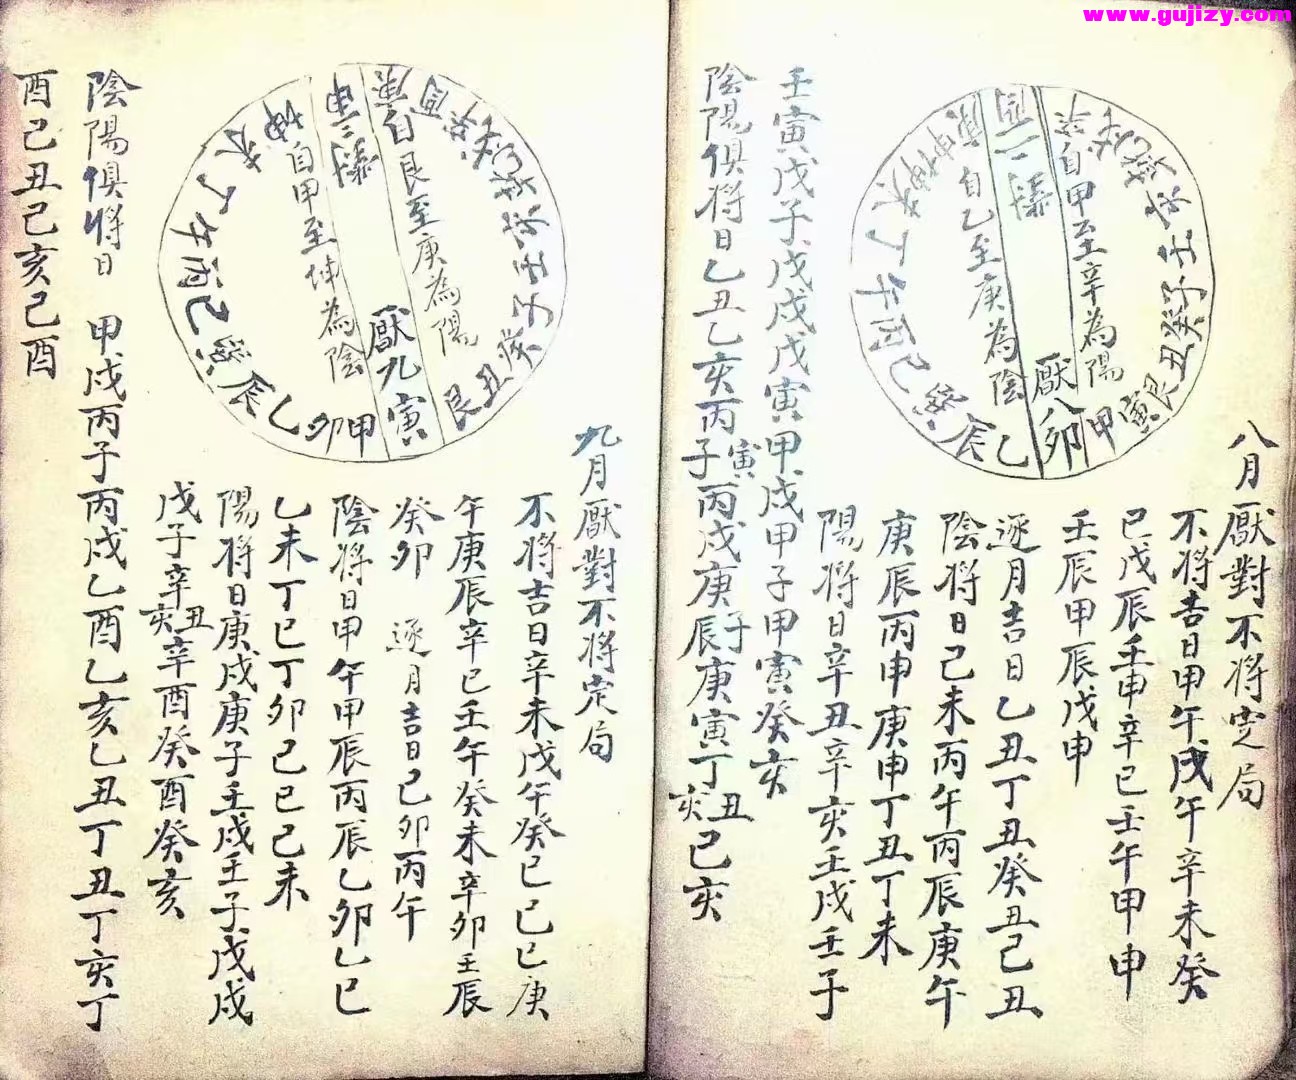 www.gujizy.com
八月厭對不將定局
不將吉日甲午戌午辛未癸
巳戊辰壬申辛巳壬午甲申
壬辰甲辰戊申
逐月吉日乙丑丁丑癸丑己丑
陰將日己未丙午丙辰庚午
庚辰丙申庚申丁丑丁未
陽將日辛丑辛亥壬戌壬子
壬寅戊子戊戌戊寅甲戌甲子甲寅癸亥
陰陽俱將日乙丑乙亥丙子寅丙戌庚辰子庚寅丁亥丑己亥
自甲至辛為陽
同一樣
自乙至庚為陰
厭八卯
甲寅艮丑癸子壬
乙辰巽巳丙午丁未坤申庚
九月厭對不將定局
不將吉日辛未戊午癸巳己巳庚
午庚辰辛巳壬午癸未辛卯壬辰
癸卯 逐月吉日己卯丙午
陰將日甲午甲辰丙辰乙卯乙巳
乙未丁巳丁卯己巳己未
陽將日庚戌庚子壬戌壬子戊戌
戊子辛亥丑辛酉癸酉癸亥
陰陽俱將日 甲戌丙子丙戌乙酉乙亥乙丑丁丑丁亥丁
酉己丑己亥己酉
自艮至庚為陽
申二樣
自甲至坤為陰
厭九寅
艮丑癸子壬
甲卯乙辰巽巳丙午丁未坤